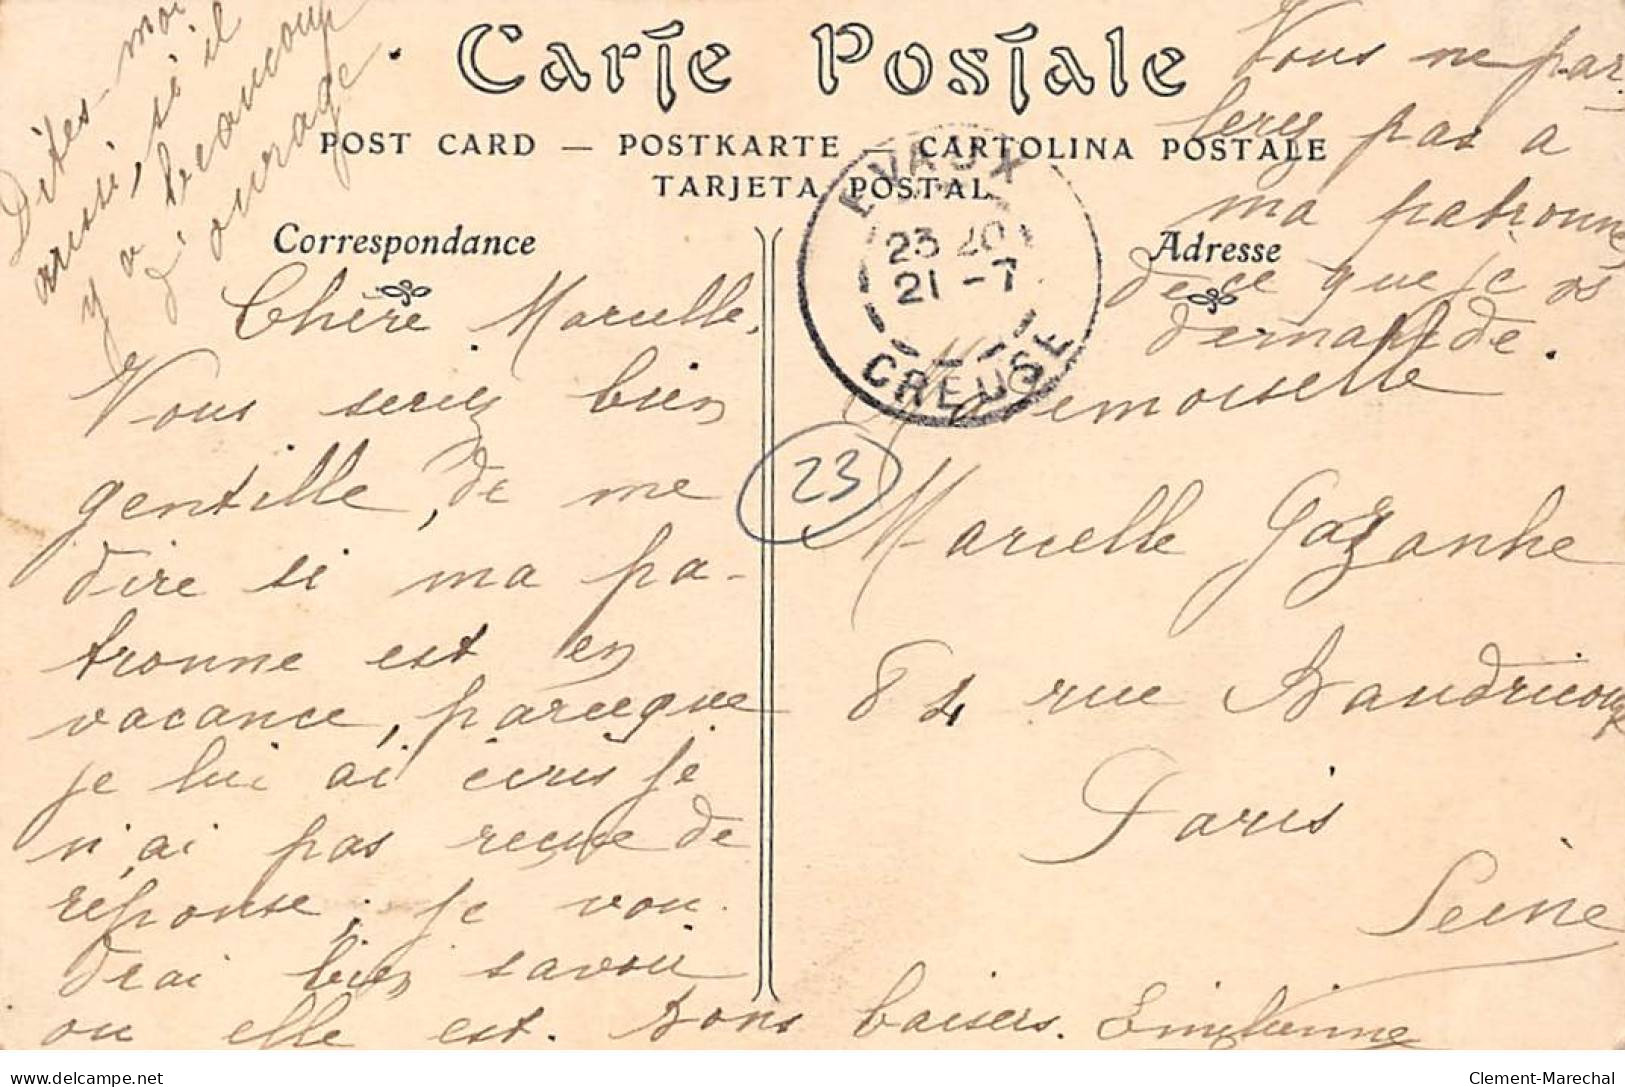 Carte Postale
POST CARD — POSTKARTE — CARTOLINA POSTALE
TARJETA POSTAL
Correspondance
Adresse
EVAUX
23 20
21 -7
CREUSE
23
Chère Marcelle,
Vous seriez bien
gentille, de me
dire si ma pa-
tronne est en
vacance, parceque
je lui ai écris je
n'ai pas recue de
réponse; je vou
drai bien savoir
ou elle est. Bons baisers. Emilienne
Dites-moi
aussi, si il
y a beaucoup
d'ouvrage.
Vous ne par
lerez pas a
ma patronne
de ce que je
demande.
Mademoiselle
Marcelle Gazanhe
84 rue Baudricourt
Paris
Seine
Clement-Marechal